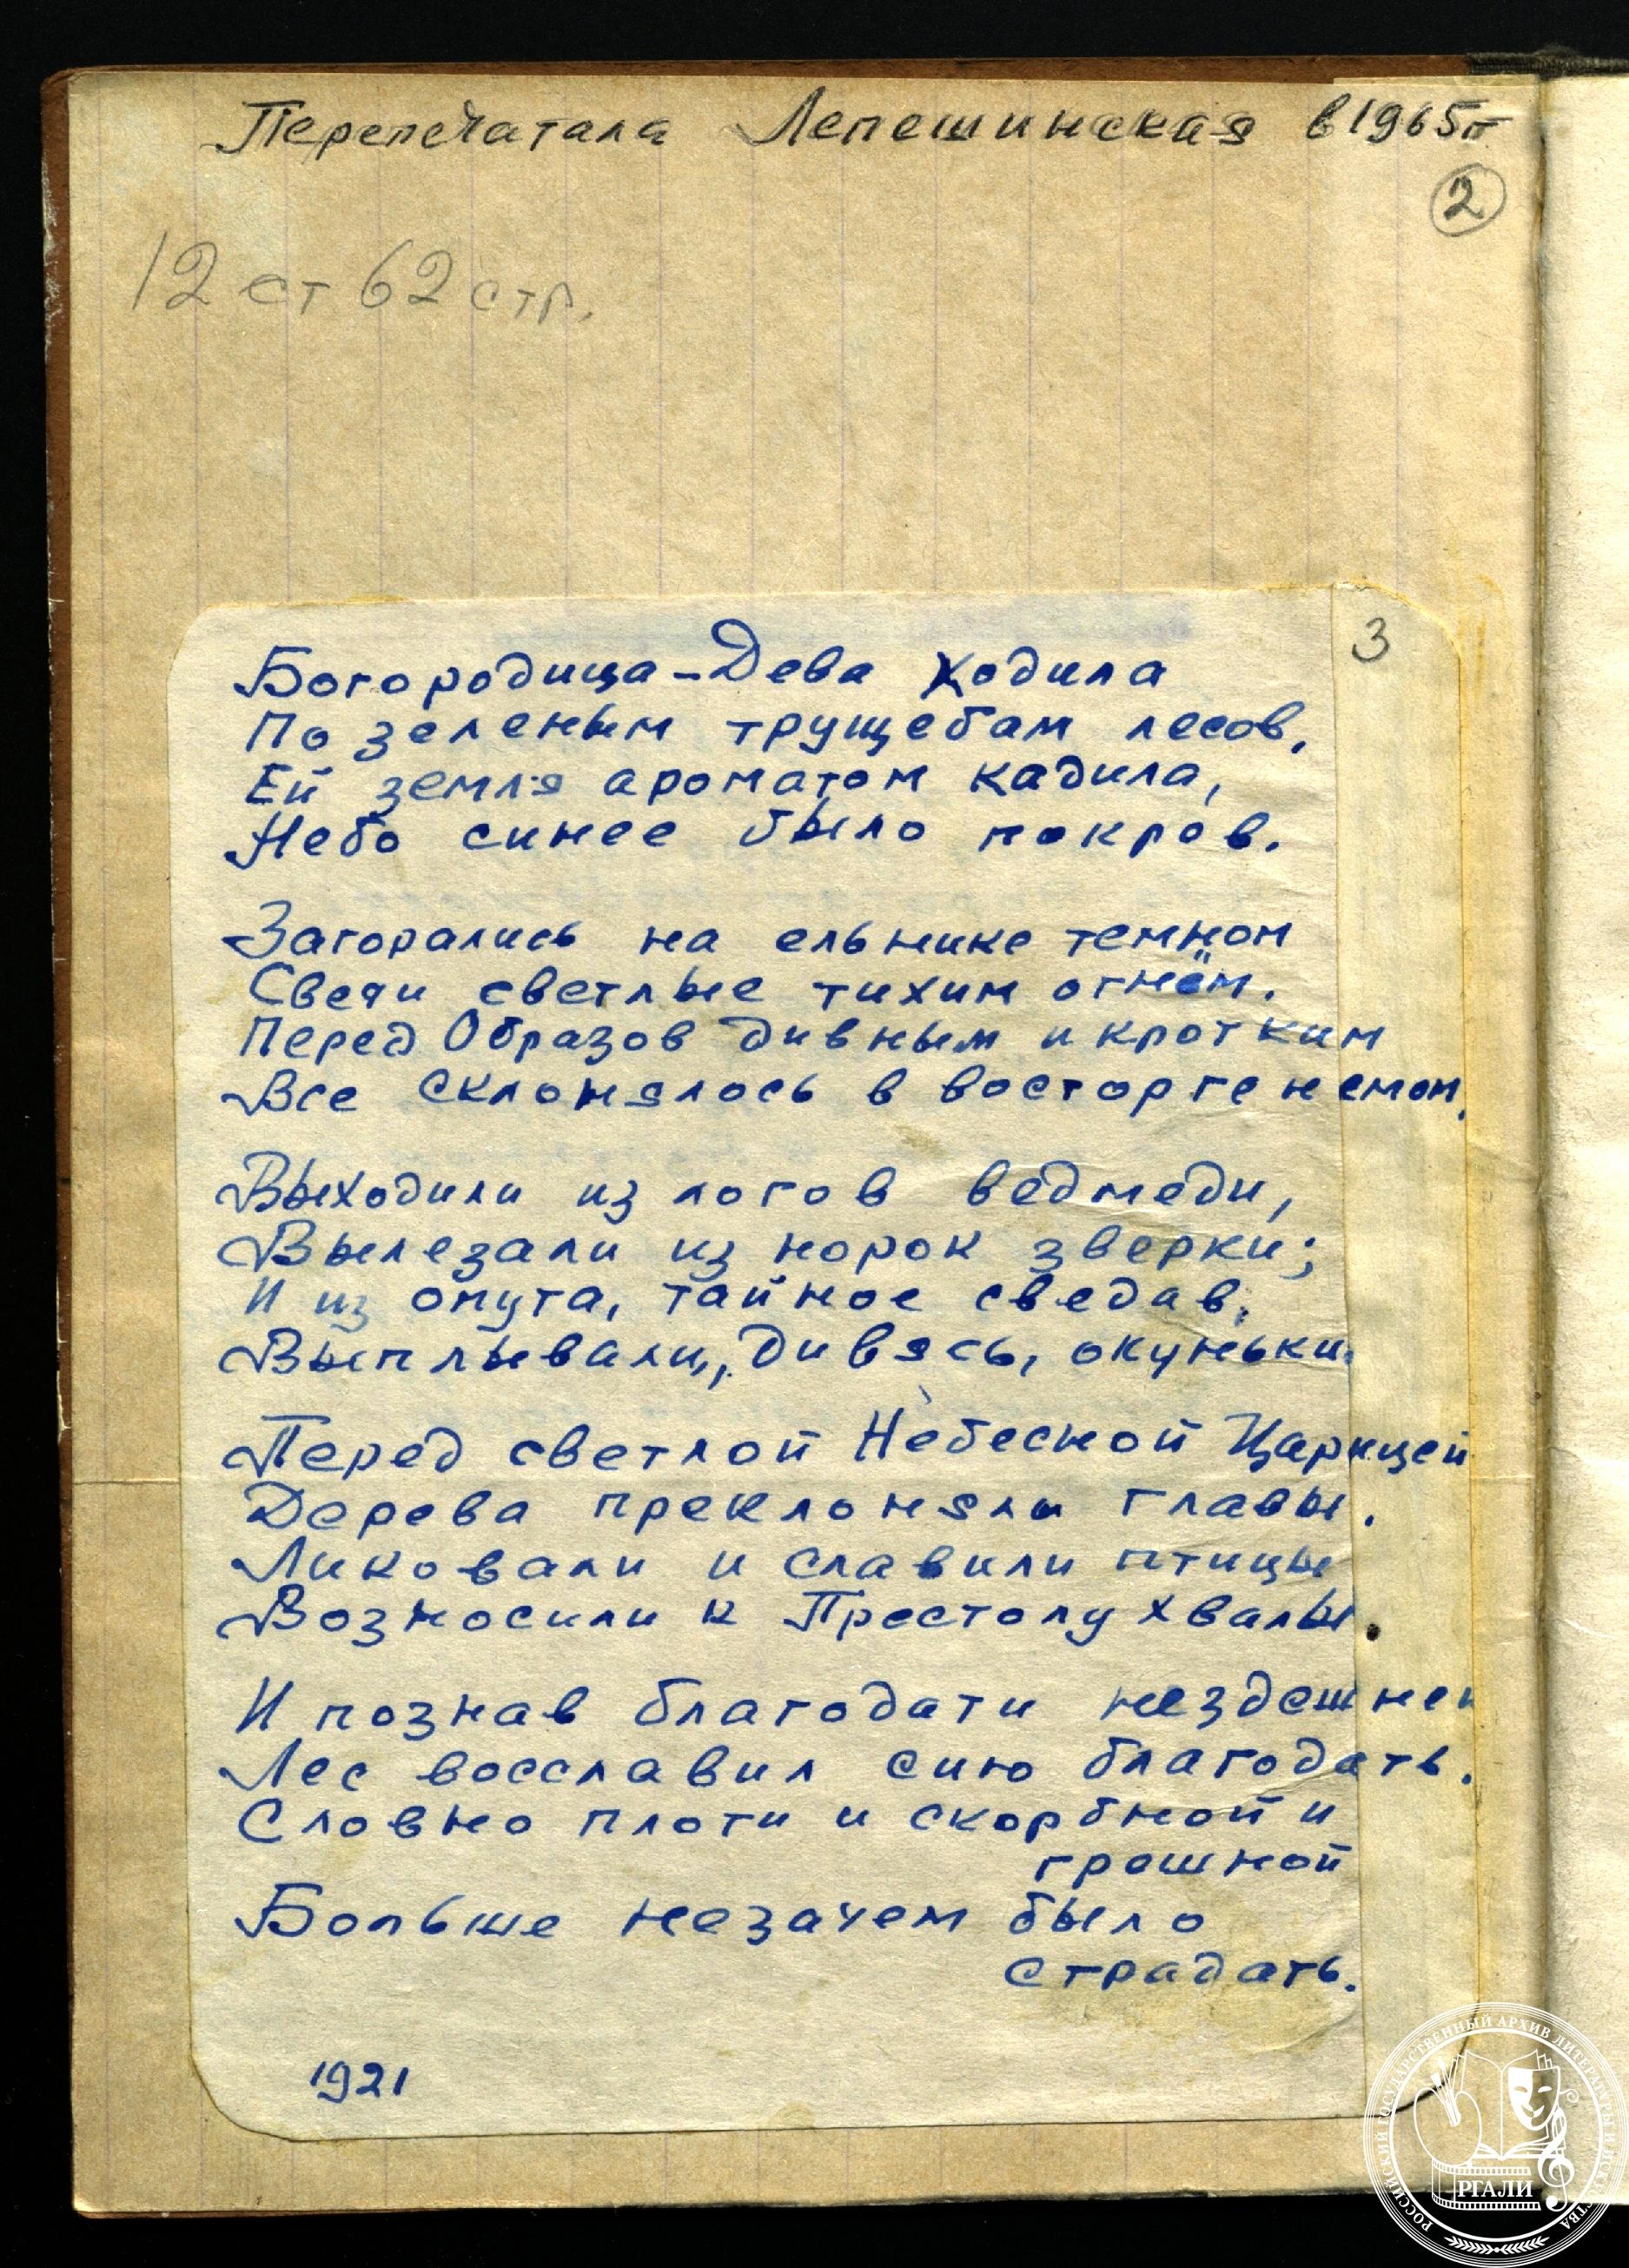 Перепечатала Лепешинская в 1965 г
2
12 ст 62 стр.
3
Богородица-Дева ходила
По зеленым трущебам лесов,
Ей земля ароматом кадила,
Небо синее было покров.
Загорались на ельнике темном
Свечи светлые тихим огнём.
Перед Образов дивным и кротким
Все склонялось в восторге немом.
Выходили из логов ведмеди,
Вылезали из норок зверки;
И из омута, тайное сведав,
Выплывали, дивясь, окуньки.
Перед светлой Небесной Царицей
Дерева преклоняли главы.
Ликовали и славили птицы
Возносили к Престолу хвалы.
И познав благодати нездешней
Лес восславил сию благодать.
Словно плоти и скорбной и
грешной
Больше незачем было
страдать.
1921
РОССИЙСКИЙ ГОСУДАРСТВЕННЫЙ АРХИВ ЛИТЕРАТУРЫ И ИСКУССТВА
РГАЛИ